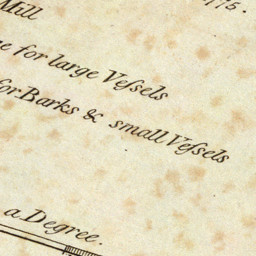 Mill
for large Veſsels
for Barks & small Veſsels
a Degree.